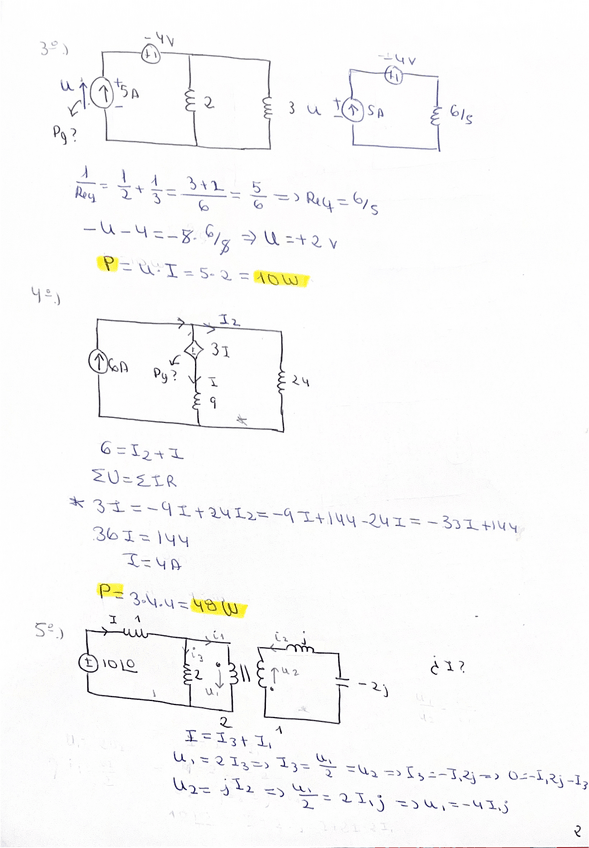 3º.)
-4V
u
5A
Pg?
2
3
-4V
u
5A
6/5
1/Req = 1/2 + 1/3 = 3+2/6 = 5/6 => Req = 6/5
-u-4=-8·6/8 => u=+2 v
P = u·I = 5·2 = 10W
4º.)
I2
6A
3I
Pg?
I
9
24
*
6 = I2 + I
ΣU=ΣIR
* 3I = -9I+24I2 = -9I+144-24I = -33I+144
36I = 144
I = 4A
P = 3·4·4 = 48W
5º.)
I
1
i1
i2
j
10∠0
i3
2
u1
u2
-2j
¿I?
2
1
I = I3 + I1
u1 = 2I3 => I3 = u1/2 = u2 => I3 = -I12j => 0 = -I12j - I3
u2 = jI2 => u1/2 = 2I1j => u1 = -4I1j
2